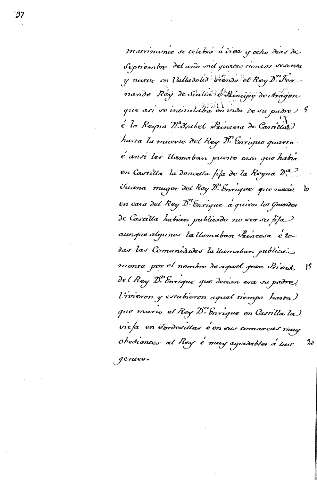 37
matrimonio se celebro á diez y ocho dias de
Septiembre del año mil quatro cientos sesenta
y nueve en Valladolid siendo el Rey Dn. Fer-
nando Rey de Sicilia é Principe de Aragon
que asi se intitulaba en vida de su padre 5
é la Reyna Da. Isabel Princesa de Castilla
hasta la muerte del Rey Dn. Enrique
é ansi les llamaban puesto caso que habia
en Castilla la doncella fija de la Reyna Da.
Juana muger del Rey Dn. Enrique que nacio 10
en casa del Rey Dn. Enrique á quien los Grandes
de Castilla habian publicado no ser su fija
aunque algunos la llamaban Princesa é to-
das las Comunidades la llamaban publica-
mente por el nombre de aquel 15
del Rey Dn. Enrique que decian era su padre
Vivieron y estubieron aquel tiempo hasta
que murio el Rey Dn. Enrique en Castilla la
vieja en Tordesillas é en sus comarcas muy
obedientes al Rey é muy agradables á sus 20
gentes.